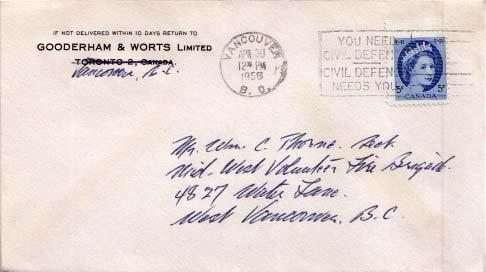 IF NOT DELIVERED WITHIN 10 DAYS RETURN TO
GOODERHAM & WORTS LIMITED
TORONTO 2, CANADA.
Vancouver, B.C.
VANCOUVER
APR 30
12 PM
1956
B. C.
YOU NEED
CIVIL DEFEN
CIVIL DEFEN
NEEDS YOU
E II R
5¢ 5¢
CANADA
Mr. Wm. C. Thorne. Sect.
Mid-West Volunteer Fire Brigade.
4827 Water Lane.
West Vancouver, B.C.